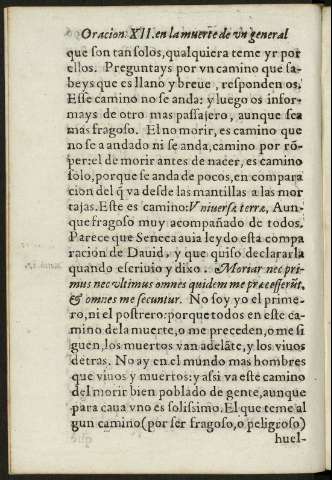 Oracion. XII. en la muerte de vn general
que son tan solos, qualquiera teme yr por
ellos. Preguntays por vn camino que sa-
beys que es llano y breue, responden os.
Esse camino no se anda: y luego os infor-
mays de otro mas passajero, aunque sea
mas fragoso. El no morir, es camino que
no se a andado ni se anda, camino por rõ-
per: el de morir antes de nacer, es camino
solo, porque se anda de pocos, en compara
cion del q̃ va desde las mantillas a las mor
tajas. Este es camino: Vniuersæ terræ, Aun-
que fragoso muy acompañado de todos.
Parece que Seneca auia leydo esta compa
ración de Dauid, y que quiso declararla
quando escriuio y dixo. Moriar nec pri-
mus nec vltimus omnes quidem me præcesserũt,
& omnes me secuntur. No soy yo el prime-
ro, ni el postrero: porque todos en este ca
mino de la muerte, o me preceden, o me si
guen, los muertos van adelãte, y los viuos
detras. No ay en el mundo mas hombres
que viuos y muertos: y assi va este camino
del morir bien poblado de gente, aunque
para cava vno es solissimo. El que teme al
gun camino (por ser fragoso, o peligroso)
huel-